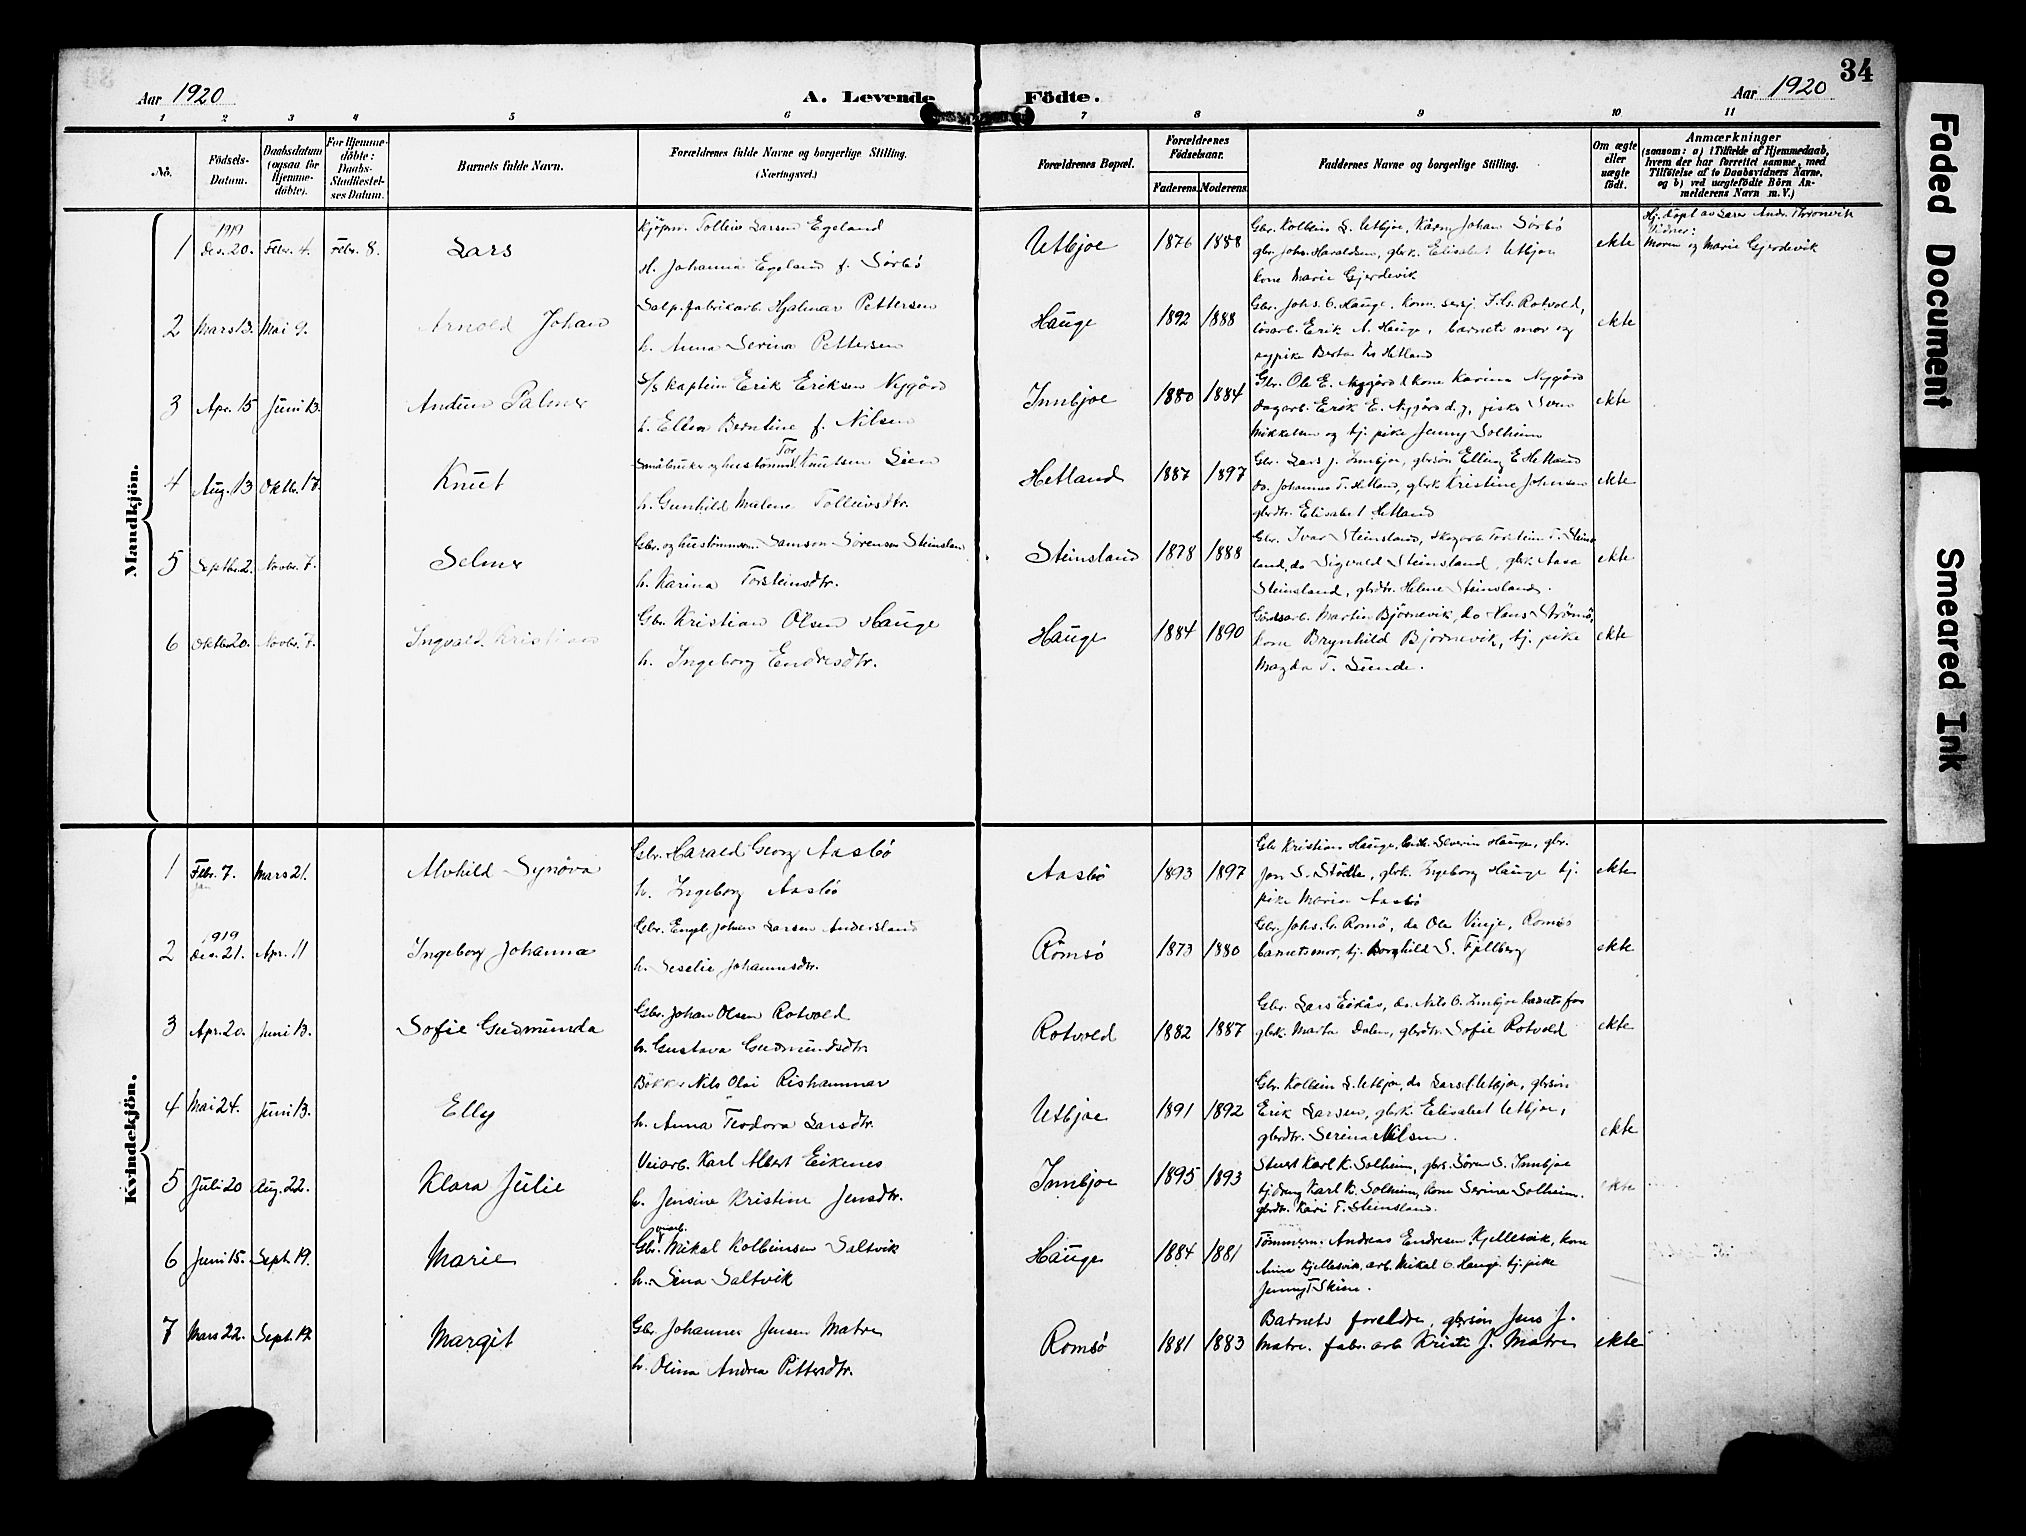 34
Aar 1920
A. Levende Födte.
Aar 1920
1 2 3 4 5 6 7 8 9 10 11
No.
Födsels-Datum.
Daabsdatum (ogsaa for Hjemme-döbte).
For Hjemme-döbte: Daabs-Stadfæstel-ses Datum.
Barnets fulde Navn.
Forældrenes fulde Navne og borgerlige Stilling.
(Næringsvei.)
Forældrenes Bopæl.
Forældrenes Födselsaar.
Faderens. Moderens.
Faddernes Navne og borgerlige Stilling.
Om ægte eller uægte födt.
Anmærkninger
(saasom: a) i Tilfælde af Hjemmedaab,
hvem der har forrettet samme, med
Tilföielse af to Daabsvidners Navne,
og b) ved uægtefödte Börn An-
melderens Navn m.V.)
Mandkjön.
1 1919 Des. 20. Febr. 4. Febr. 8. Lars
Kjøpm. Tolleiv Larsen Egeland
H. Johanna Egeland f. Sørbø
Utbjoe 1876 1888
Gbr. Kolbein L. Utbjoe, Johan Sørbø
gbr. Johs. Haraldsen, gbrk. Elisabet Utbjoe
kone Marie Gjerdevik
ekte
Hj. døpt av Lars Andr. Thronvik
Vidner:
Moren og Marie Gjerdevik
2 Mars 13. Mai 9. Arnold Johan
Salp. fabrikarb. Hjalmar Pettersen
h. Anna Serina Pettersen
Hauge 1892 1888
Gbr. Johs. O. Hauge, Rotvold,
løsarb. Erik A. Hauge, barnets mor og
sypike Berta Hetland
ekte
3 Apr. 15 Juni 13. Anduv Palmer
S/s kaptein Erik Eriksen Nygård
h. Ellen Berntine f. Nilsen
Innbjoe 1880 1884
Gbr. Ole E. Nygård & kone Karina Nygård
Dagarb. Erik E. Nygård d.y., fisker Sven
Mikkelsen og tj. pike Jenny Solheim
ekte
4 Aug. 13 Oktbr. 17. Knut
Småbruker og hustømm. Tor Knutsen Lien
h. Gunhild Malene Tolleivsdtr.
Hetland 1887 1897
Gbr. Lars J. Innbjoe, gbrsøn Elling E. Hetland
do. Johannes T. Hetland, gbrk. Kristine Johnsen
gbrdtr. Elisabet Hetland
ekte
5 Septbr. 2. Novbr. 7. Selmer
Gbr. og hustømmerm. Samson Sørensen Steinsland
h. Karina Torsteinsdtr.
Steinsland 1878 1888
Gbr. Ivar Steinsland, skogarb. Torstein T. Steins
land, do Sigvald Steinsland, gbrk. Aasa
Steinsland, gbrdtr. Helene Steinsland.
ekte
6 Oktbr. 20. Novbr. 7. Ingvald Kristian
Gbr. Kristian Olsen Hauge
h. Ingeborg Endresdtr.
Hauge 1884 1890
Gårdsarb. Martin Bjørnevik, do Hans Strømø,
kone Brynhild Bjørnevik, tj. pike
Magda T. Sunde.
ekte
Kvindekjön.
1 Febr. 7. Jan Mars 21. Alvhild Synøva
Gbr. Harald Georg Aasbø
h. Ingeborg Aasbø
Aasbø 1893 1897
Gbr Kristian Hauge, Severin Hauge, gbr.
Jon S. Stødle, gbrk. Ingeborg Hauge tj.
pike Maria Aasbø
ekte
2 1919 Des. 21. Apr. 11 Ingeborg Johanna
Gbr. Engel Johan Larsen Andersland
h. Seselie Johannesdtr.
Romsø 1873 1880
Gbr. Johs. G. Romsø, do Ola Vinje, Romsø
barnetsmor, tj. Borghild S. Fjellberg
ekte
3 Apr. 20. Juni 13. Sofie Gudmunda
Gbr. Johan Olsen Rotvold
h. Gustava Gudmundsdtr
Rotvold 1882 1887
Gbr. Lars Eikås, do. Nils O. Innbjoe barnets far
gbrk. Marta Dalen, gbrdtr. Sofie Rotvold
ekte
4 Mai 24. Juni 13. Elly
Bøkker Nils Olai Rishammer
h. Anna Teodora Larsdtr.
Utbjoe 1891 1892
Gbr. Kolbein L. Utbjoe, do Lars Utbjoe, gbrsøn
Erik Larsen, gbrk. Elisabet Utbjoe,
gbrdtr. Serina Nilsen.
ekte
5 Juli 20 Aug. 22. Klara Julie
Veiarb. Karl Albert Eikenes
h. Jensine Kristine Jensdtr.
Innbjoe 1895 1893
Stuert Karl K. Solheim, gbrs. Søren S. Innbjoe
tj. dreng Karl K. Solheim, kone Serina Solheim.
gbrdtr. Kari T. Steinsland.
ekte
6 Juni 15. Sept. 19. Marie
Gbr. Mikal Kolbeinsen Saltvik
h. Sina Saltvik
Hauge 1884 1881
Tømmerm. Andreas Endresen Kjellesvik, kone
Anna Kjellesvik, arb. Mikal O. Hauge. tj. pike
Jenny T Skim.
7 Mars 22. Sept. 19. Margit
Gbr Johannes Jensen Matre
h. Olina Andrea Pettersdtr.
Romsø 1881 1883
Barnets foreldre, gbrsøn Jens J.
Matre. fabr. arb Kristi J. Matre
ekte
Faded Document
Smeared Ink